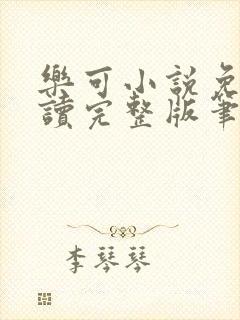 樂可小說免
讀完整版筆
李琴琴